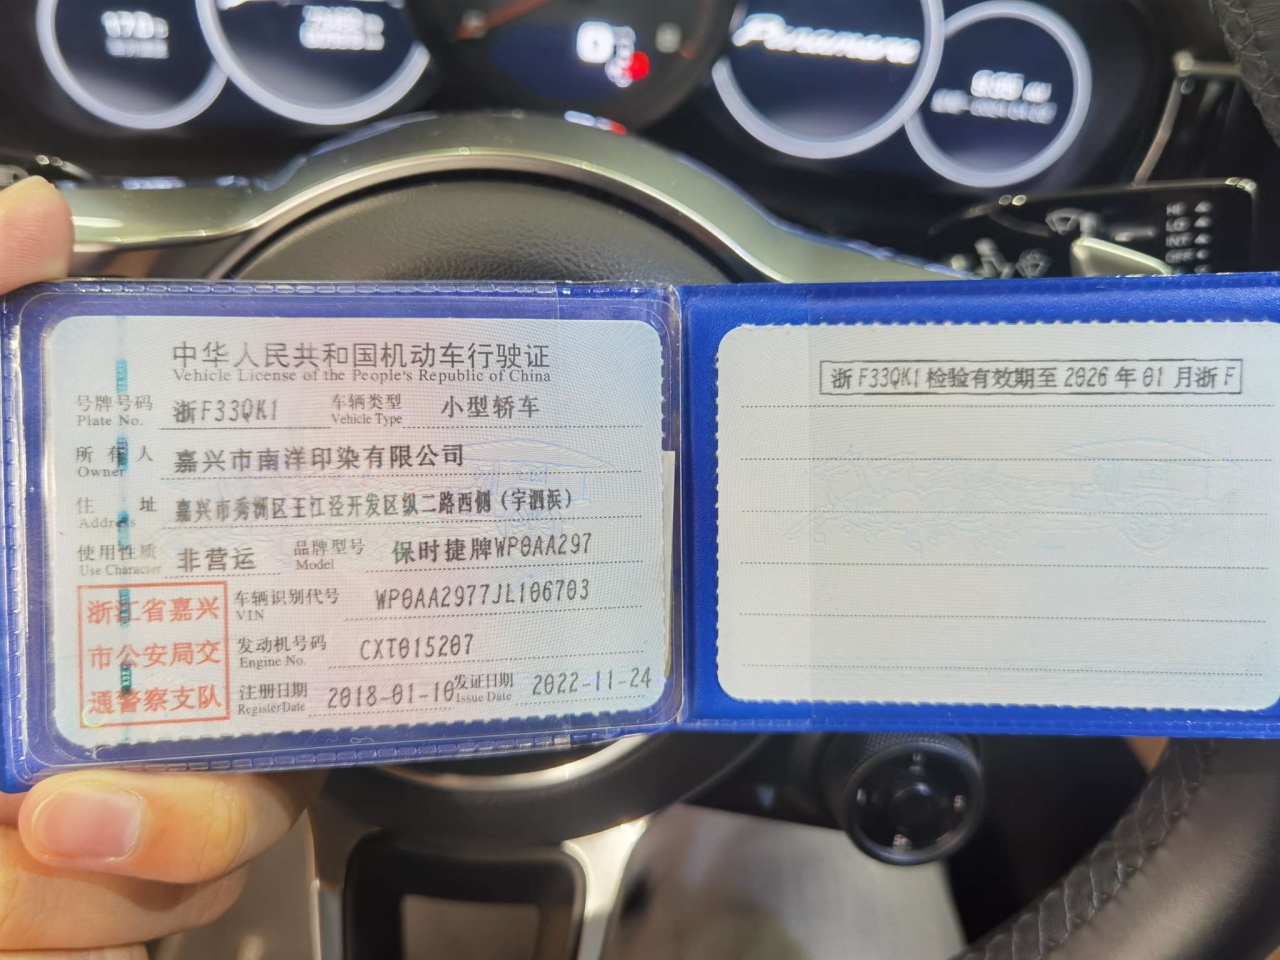 Panamera
中华人民共和国机动车行驶证
Vehicle License of the People's Republic of China
号牌号码 浙F33QK1 车辆类型 小型轿车
Plate No. Vehicle Type
所有人 嘉兴市南洋印染有限公司
Owner
住址 嘉兴市秀洲区王江泾开发区纵二路西侧（宇泗浜）
Address
使用性质 非营运 品牌型号 保时捷牌WP0AA297
Use Character Model
车辆识别代号 WP0AA2977JL106703
VIN
发动机号码 CXT015207
Engine No.
注册日期 2018-01-10 发证日期 2022-11-24
Register Date Issue Date
浙江省嘉兴
市公安局交
通警察支队
浙F33QK1检验有效期至2026年01月浙F
HI
LO
INT